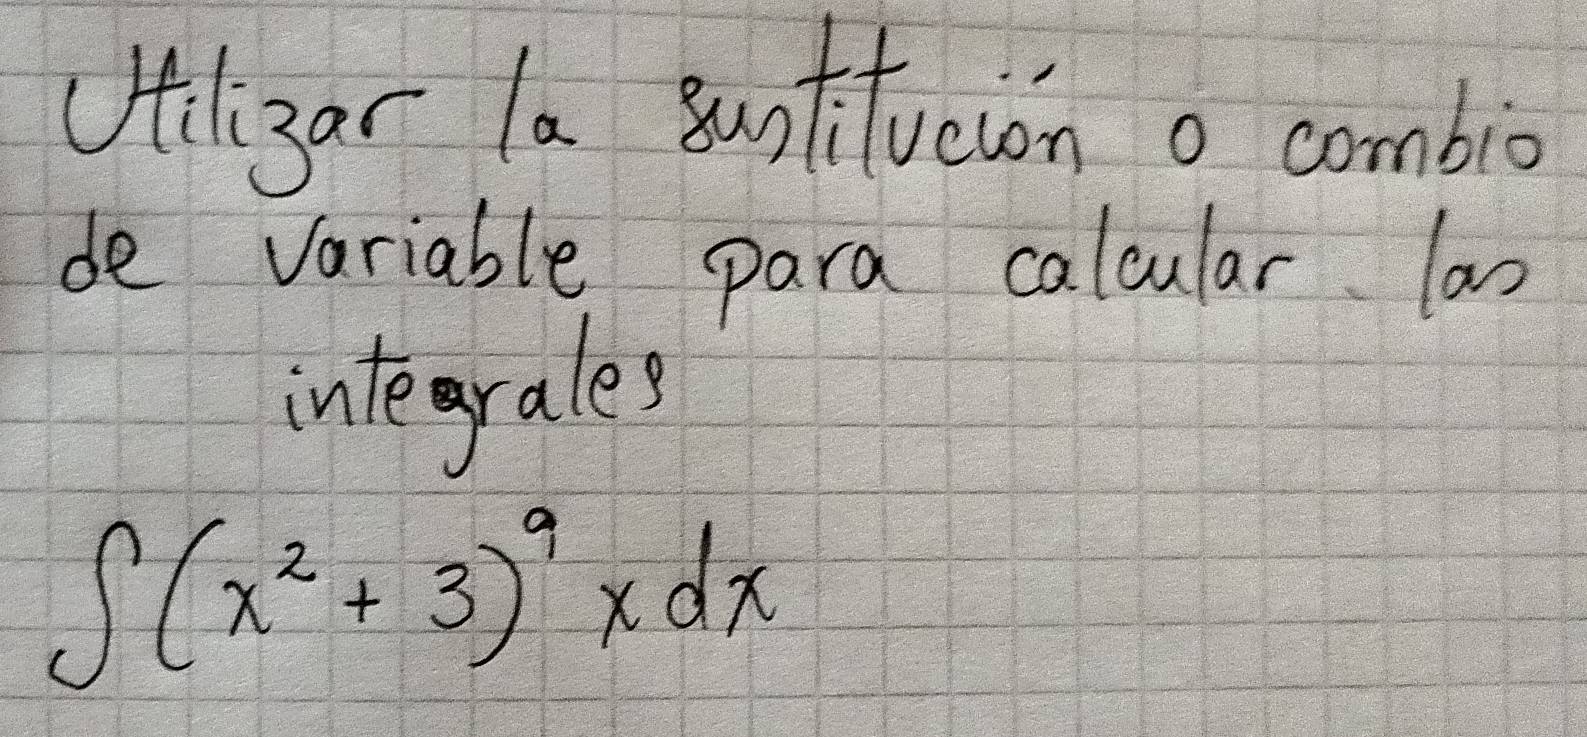 Utilizar la sustitución o combio
de variable para calcular las
integrales
∫(x² + 3)⁹ x dx